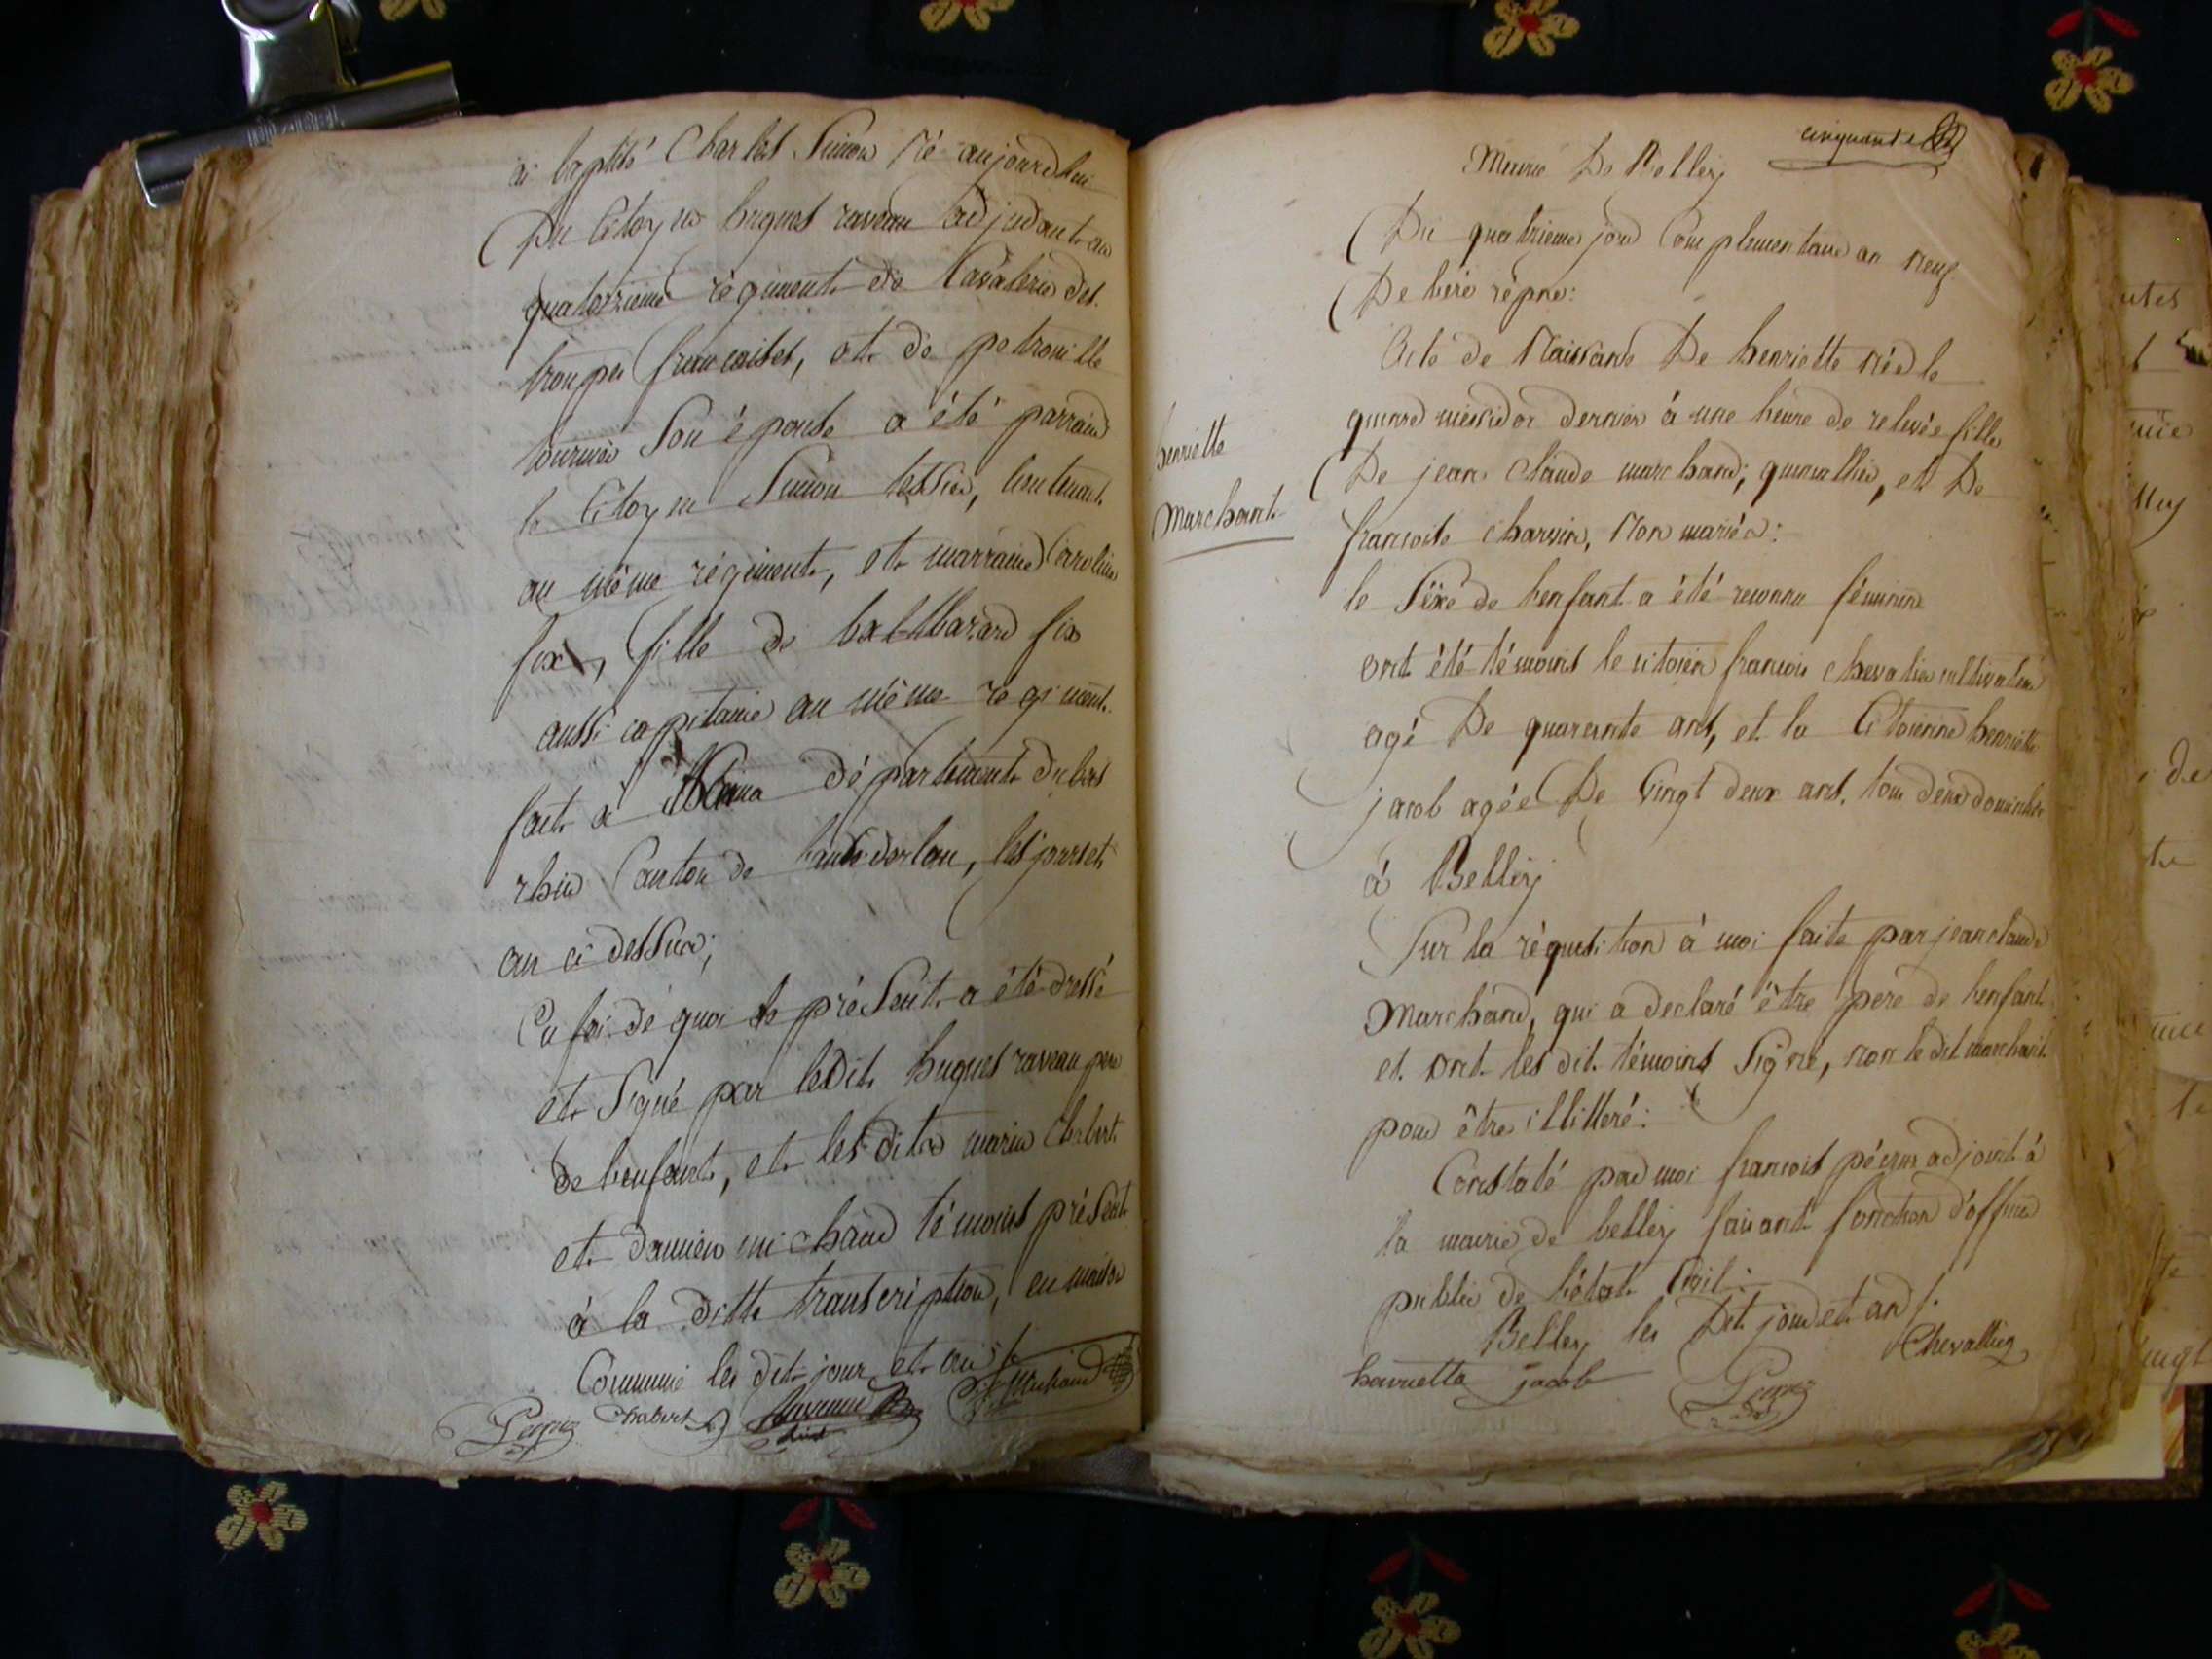 ai baptisé Charles Simon né aujourdhui
Du Citoyen hugues raveau adjudant au
quatorzieme régiment de Cavalerie des
troupes francaises, et de petronille
tournier Son épouse a été parrain
le Citoyen Simon tessier, lieutenant
au même régiment, et marraine Caroline
fix, fille de balthazard fix
aussi capitaine au même regiment.
fait à départements du bas
rhin Canton de les jours et
an ci dessus;
En foi de quoi le préSent a été dressé
et Signé par ledit hugues raveau pere
de lenfant, et les dits marin Chabert
et damien michaud témoins présents
à la ditte transcription, en maison
Commune les dit jour et an
Peyne Chabert Raveau Michaud
cinquante
Mairie De Belley
Du quatrieme jour Complementaire an neuf
De l'ère répne:
Acte de Naissance De henriette née le
quinze messidor dernier à une heure de relevée fille
De jean Claude marchand, quincallier, et De
francoise charvin, Non mariés:
henriette
Marchant
le Sèxe de lenfant a été reconnu féminin
ont été témoins le citoien francois chevalier cultivateur
agé De quarante ans, et la Citoienne henriette
jacob agée De Vingt deux ans, tous deux domiciliés
à Belley
Sur la réquisition à moi faite par jean claude
Marchand, qui a declaré être pere de lenfant
et ont les dit témoins Signé, non le dit marchant
pour être illitteré:
Constaté par moi francois péysne adjoint à
la mairie de belley faisant fonction d'officier
public de l'état Civil:
Belley les Dit jour et an /.
henriette jacob Peyne Chevallier